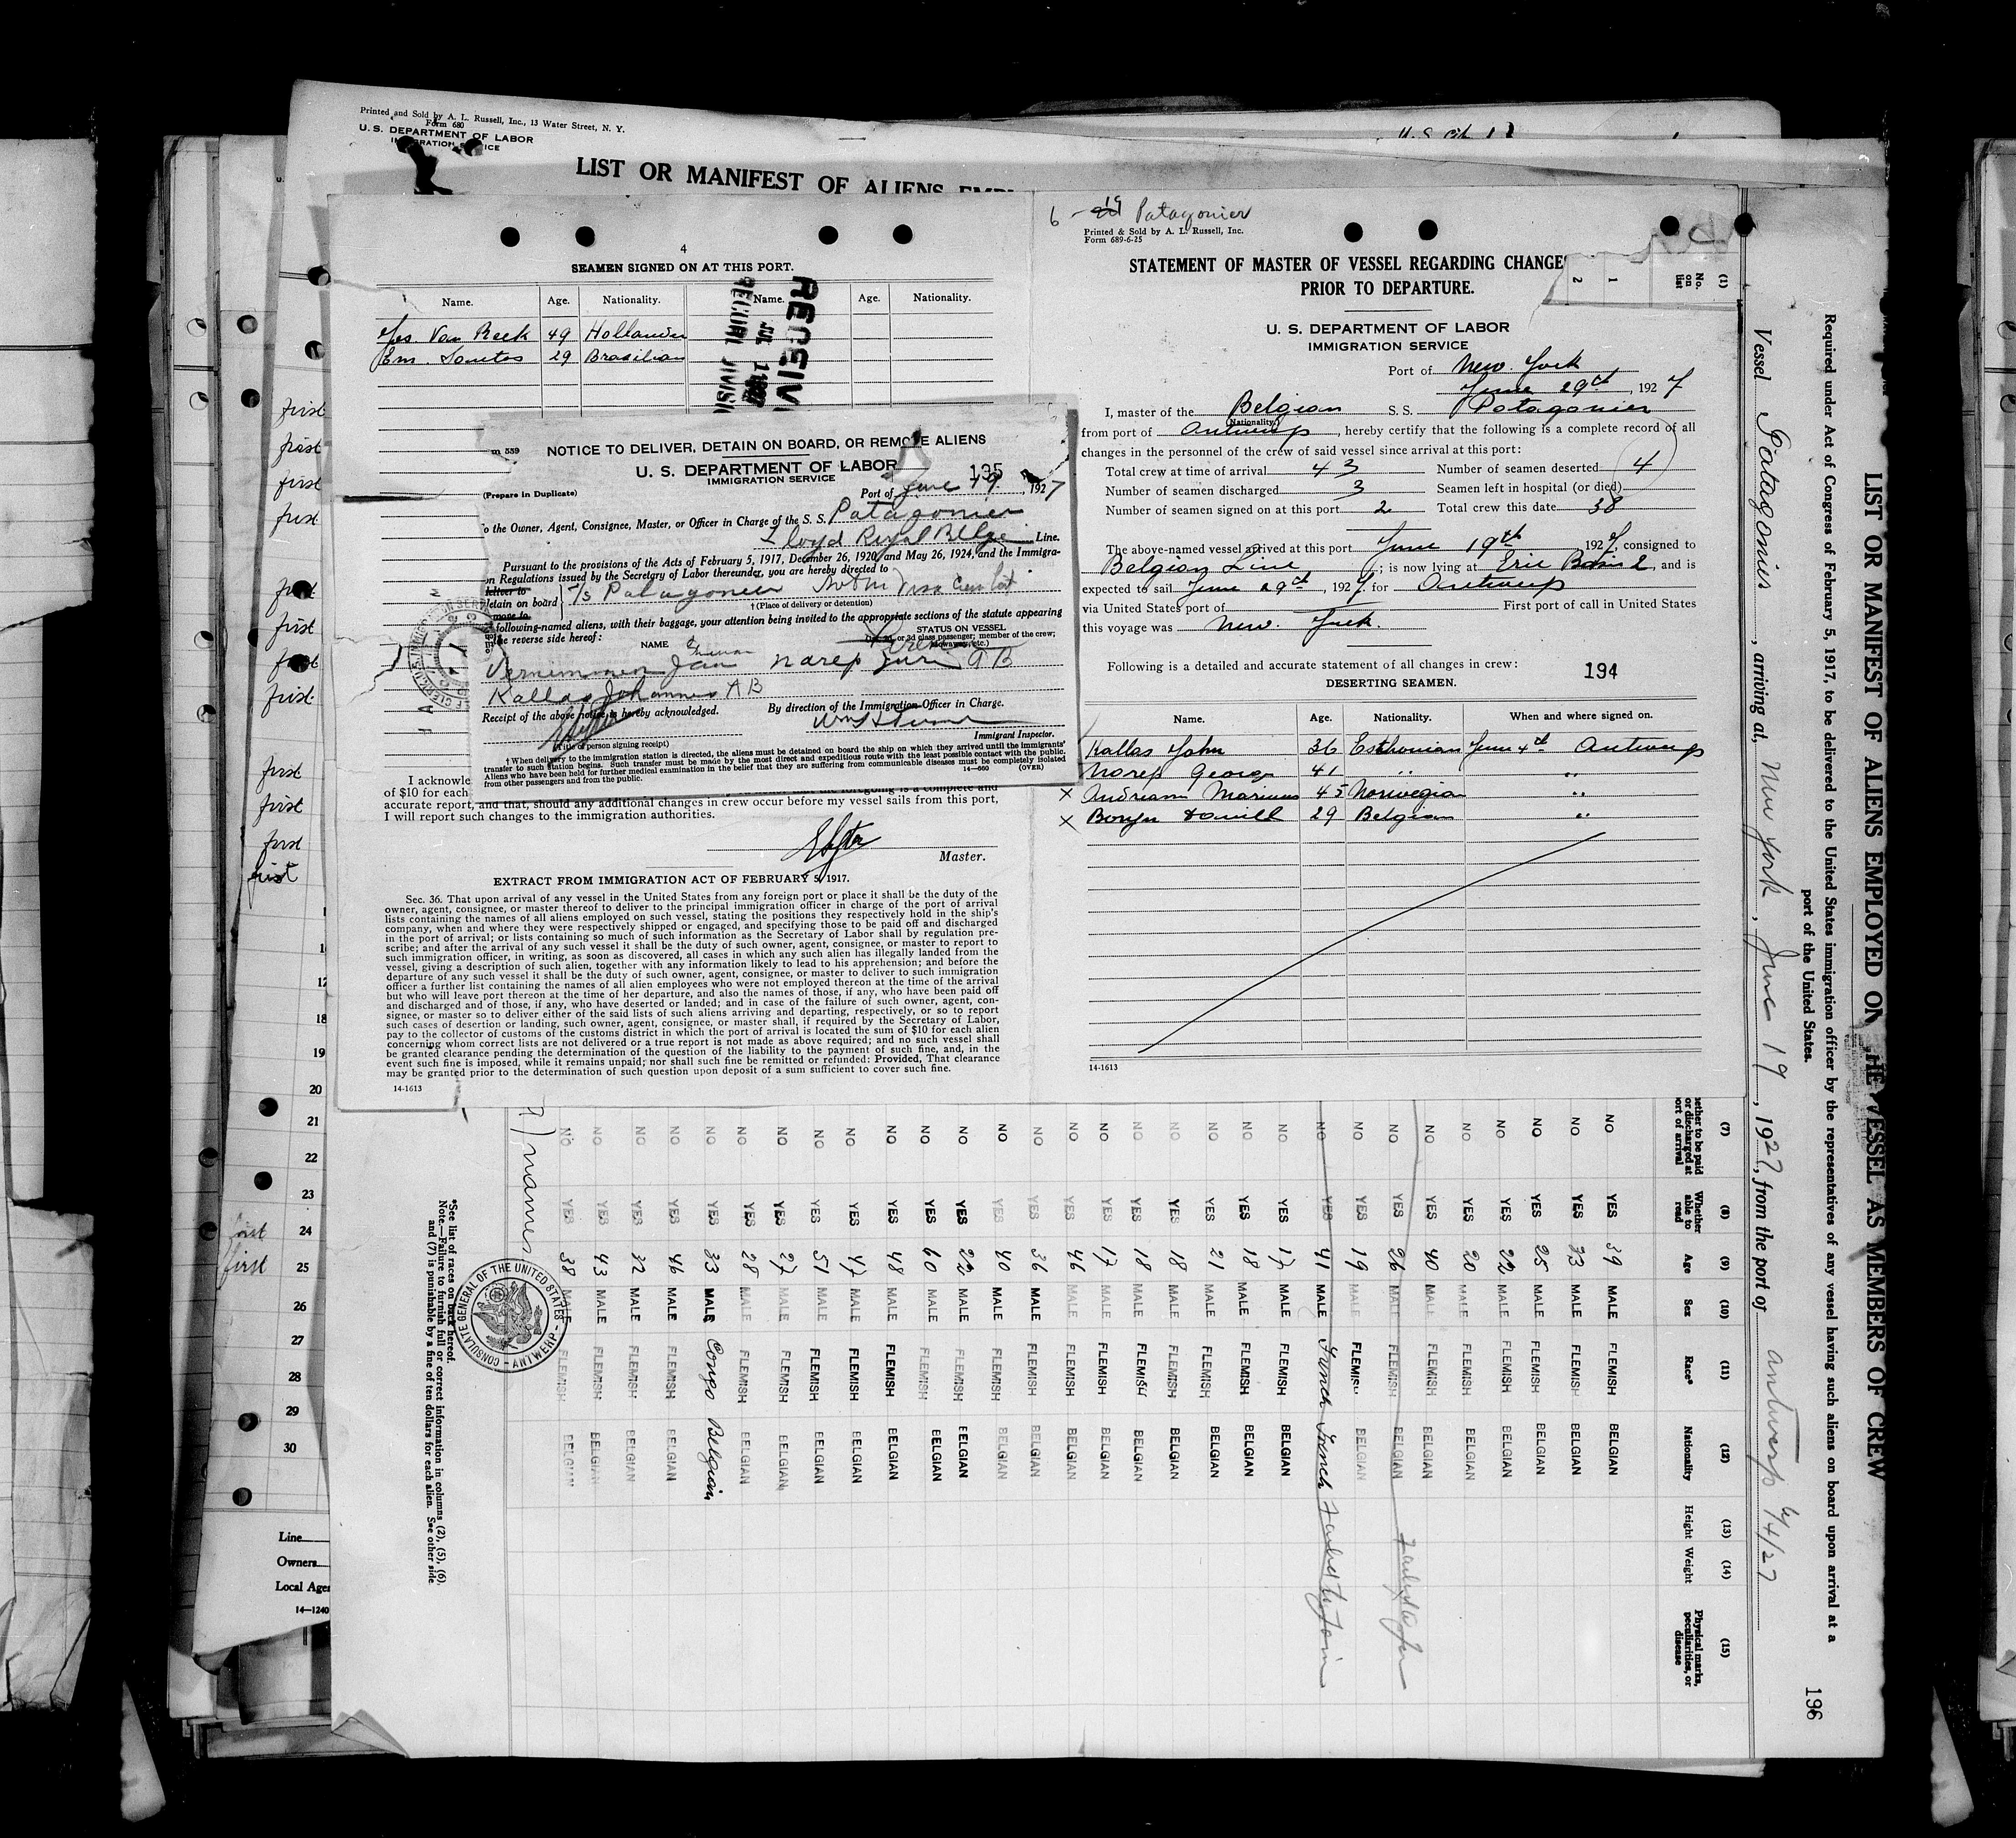 Printed and Sold by A. L. Russell, Inc., 13 Water Street, N. Y.
Form 680
U. S. DEPARTMENT OF LABOR
LIST OR MANIFEST OF ALIENS
4
SEAMEN SIGNED ON AT THIS PORT.
Name. Age. Nationality. Name. Age. Nationality.
Jos. Van Beek 49 Hollander
Em. Santos 29 Brasilian
RECEIV
JUL 1 1927
first
first
first
first
first
first
first
first
first
first
first
first
NOTICE TO DELIVER, DETAIN ON BOARD, OR REMOVE ALIENS
U. S. DEPARTMENT OF LABOR
IMMIGRATION SERVICE
195
(Prepare in Duplicate)
Port of June 19, 1927
To the Owner, Agent, Consignee, Master, or Officer in Charge of the S. S. Patagonier
Lloyd Royal Belge Line.
Pursuant to the provisions of the Acts of February 5, 1917, December 26, 1920, and May 26, 1924, and the Immigra-
on Regulations issued by the Secretary of Labor thereunder, you are hereby directed to
detain on board S Patagonier
† (Place of delivery or detention)
following-named aliens, with their baggage, your attention being invited to the appropriate sections of the statute appearing
the reverse side hereof:
NAME
STATUS ON VESSEL
or 3d class passenger; member of the crew;
Vernimmen Jan Narep Juri A B
Kallas Johannes A B
Receipt of the above notice is hereby acknowledged. By direction of the Immigration Officer in Charge.
(Title of person signing receipt)
Immigrant Inspector.
† When delivery to the immigration station is directed, the aliens must be detained on board the ship on which they arrived until the immigrants'
transfer to such station begins. Such transfer must be made by the most direct and expeditious route with the least possible contact with the public.
Aliens who have been held for further medical examination in the belief that they are suffering from communicable diseases must be completely isolated
from other passengers and from the public.
14—660 (OVER)
I acknowle
of $10 for each
accurate report, and that, should any additional changes in crew occur before my vessel sails from this port,
I will report such changes to the immigration authorities.
Master.
EXTRACT FROM IMMIGRATION ACT OF FEBRUARY 5, 1917.
Sec. 36. That upon arrival of any vessel in the United States from any foreign port or place it shall be the duty of the
owner, agent, consignee, or master thereof to deliver to the principal immigration officer in charge of the port of arrival
lists containing the names of all aliens employed on such vessel, stating the positions they respectively hold in the ship's
company, when and where they were respectively shipped or engaged, and specifying those to be paid off and discharged
in the port of arrival; or lists containing so much of such information as the Secretary of Labor shall by regulation pre-
scribe; and after the arrival of any such vessel it shall be the duty of such owner, agent, consignee, or master to report to
such immigration officer, in writing, as soon as discovered, all cases in which any such alien has illegally landed from the
vessel, giving a description of such alien, together with any information likely to lead to his apprehension; and before the
departure of any such vessel it shall be the duty of such owner, agent, consignee, or master to deliver to such immigration
officer a further list containing the names of all alien employees who were not employed thereon at the time of the arrival
but who will leave port thereon at the time of her departure, and also the names of those, if any, who have been paid off
and discharged and of those, if any, who have deserted or landed; and in case of the failure of such owner, agent, con-
signee, or master so to deliver either of the said lists of such aliens arriving and departing, respectively, or so to report
such cases of desertion or landing, such owner, agent, consignee, or master shall, if required by the Secretary of Labor,
pay to the collector of customs of the customs district in which the port of arrival is located the sum of $10 for each alien
concerning whom correct lists are not delivered or a true report is not made as above required; and no such vessel shall
be granted clearance pending the determination of the question of the liability to the payment of such fine, and, in the
event such fine is imposed, while it remains unpaid; nor shall such fine be remitted or refunded: Provided, That clearance
may be granted prior to the determination of such question upon deposit of a sum sufficient to cover such fine.
14-1613
6 - 19 Patagonier
Printed & Sold by A. L. Russell, Inc.
Form 689-6-25
STATEMENT OF MASTER OF VESSEL REGARDING CHANGES
PRIOR TO DEPARTURE.
U. S. DEPARTMENT OF LABOR
IMMIGRATION SERVICE
Port of New York
June 29th, 1927
I, master of the Belgian S. S. Patagonier
(Nationality)
from port of Antwerp, hereby certify that the following is a complete record of all
changes in the personnel of the crew of said vessel since arrival at this port:
Total crew at time of arrival 43 Number of seamen deserted (4)
Number of seamen discharged 3 Seamen left in hospital (or died)
Number of seamen signed on at this port 2 Total crew this date 38
The above-named vessel arrived at this port June 19th 1927, consigned to
Belgian Line; is now lying at Erie Basin, and is
expected to sail June 29th, 1927 for Antwerp
via United States port of First port of call in United States
this voyage was New York.
Following is a detailed and accurate statement of all changes in crew: 194
DESERTING SEAMEN.
Name. Age. Nationality. When and where signed on.
Kallas John 36 Esthonian June 4th Antwerp
Narep George 41 " "
x Andriann Marinus 45 Norwegian "
x 29 Belgian "
14-1613
LIST OR MANIFEST OF ALIENS EMPLOYED ON THE VESSEL AS MEMBERS OF CREW
Required under Act of Congress of February 5, 1917, to be delivered to the United States immigration officer by the representatives of any vessel having such aliens on board upon arrival at a
port of the United States.
Vessel Patagonier, arriving at New York, June 19, 1927, from the port of Antwerp 6/4/27
196
(1) No. on list
1
2
(7) whether to be paid or discharged at port of arrival
(8) Whether able to read
(9) Age
(10) Sex
(11) Race*
(12) Nationality
(13) Height
(14) Weight
(15) Physical marks, peculiarities, or disease
NO YES 39 MALE FLEMISH BELGIAN
NO YES 33 MALE FLEMISH BELGIAN
NO YES 25 MALE FLEMISH BELGIAN
NO YES 22 MALE FLEMISH BELGIAN
NO YES 20 MALE FLEMISH BELGIAN
NO YES 40 MALE FLEMISH BELGIAN
YES 26 MALE FLEMISH BELGIAN Failed to Join
NO YES 19 MALE FLEMISH BELGIAN
NO YES 41 MALE French French Failed to Join
NO YES 17 MALE FLEMISH BELGIAN
NO YES 18 MALE FLEMISH BELGIAN
NO YES 21 MALE FLEMISH BELGIAN
NO YES 18 MALE FLEMISH BELGIAN
NO YES 18 MALE FLEMISH BELGIAN
NO YES 17 MALE FLEMISH BELGIAN
NO YES 46 MALE FLEMISH BELGIAN
NO YES 36 MALE FLEMISH BELGIAN
NO YES 40 MALE FLEMISH BELGIAN
NO YES 22 MALE FLEMISH BELGIAN
NO YES 60 MALE FLEMISH BELGIAN
NO YES 48 MALE FLEMISH BELGIAN
NO YES 47 MALE FLEMISH BELGIAN
NO YES 51 MALE FLEMISH BELGIAN
NO YES 27 MALE FLEMISH BELGIAN
NO YES 28 MALE FLEMISH BELGIAN
NO YES 33 MALE Congo Belgian
NO YES 46 MALE FLEMISH BELGIAN
NO YES 32 MALE FLEMISH BELGIAN
NO YES 43 MALE FLEMISH BELGIAN
NO YES 38 MALE FLEMISH BELGIAN
names
CONSULATE GENERAL OF THE UNITED STATES - ANTWERP
*See list of races on back hereof.
Note.—Failure to furnish full or correct information in columns (2), (5), (6),
and (7) is punishable by a fine of ten dollars for each alien. See other side
18
19
20
21
22
23
first 24
first 25
26
27
28
29
30
Line
Owners
Local Age
14—1240